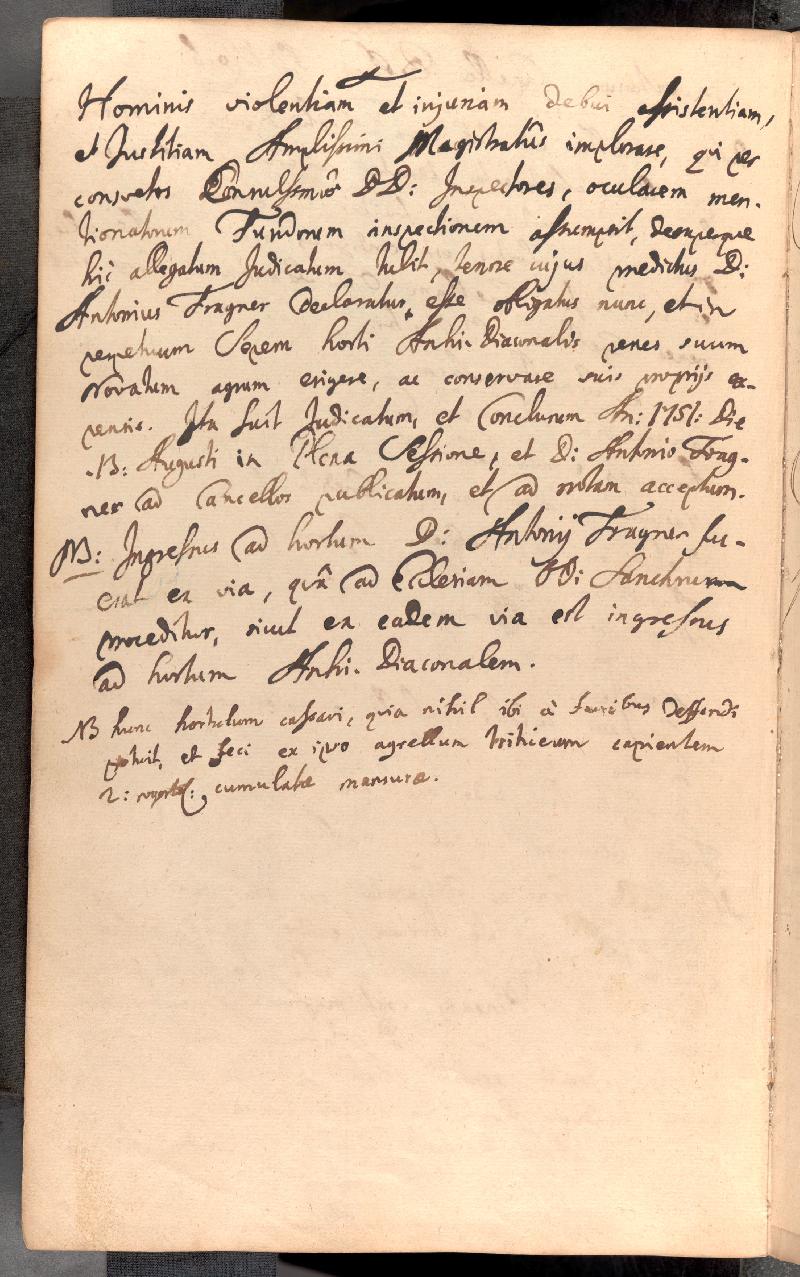 Hominis violentiam et injuriam debui assistentiam,
et Justitiam Amplissimi Magistratûs implorare, qui per
consvetos Consulissimôs DD: Inspectores, ocularem men-
tionatorum Fundorum inspectionem assumpsit, deinque
hîc allegatum Judicatum tulit, tenore cujus predictus D:
Antonius Fragner declaratur, esse obligatus nunc, et in
perpetuum Sepem horti Archi-Diaconalis penes suum
Novatum agrum erigere, ac conservare suis proprijs ex-
pensis. Ita fuit Judicatum, et Conclusum An: 1751: Die
13: Augusti in Plena Sessione, et D: Antonio Frag-
ner ad Cancellos publicatum, et ad notam acceptum.
NB: Ingressus ad hortum D: Antonij Fragner fu-
erat ex via, quâ ad Ecclesiam SSi Sanctuum
proceditur, sicut ex eadem via est ingressus
ad hortum Archi-Diaconalem.
NB hunc hortulum cassavi, quia nihil ibi à furibus deffendi
potuit, et feci ex ipso agrellum triticum capientem
2: cumulatæ mensuræ.